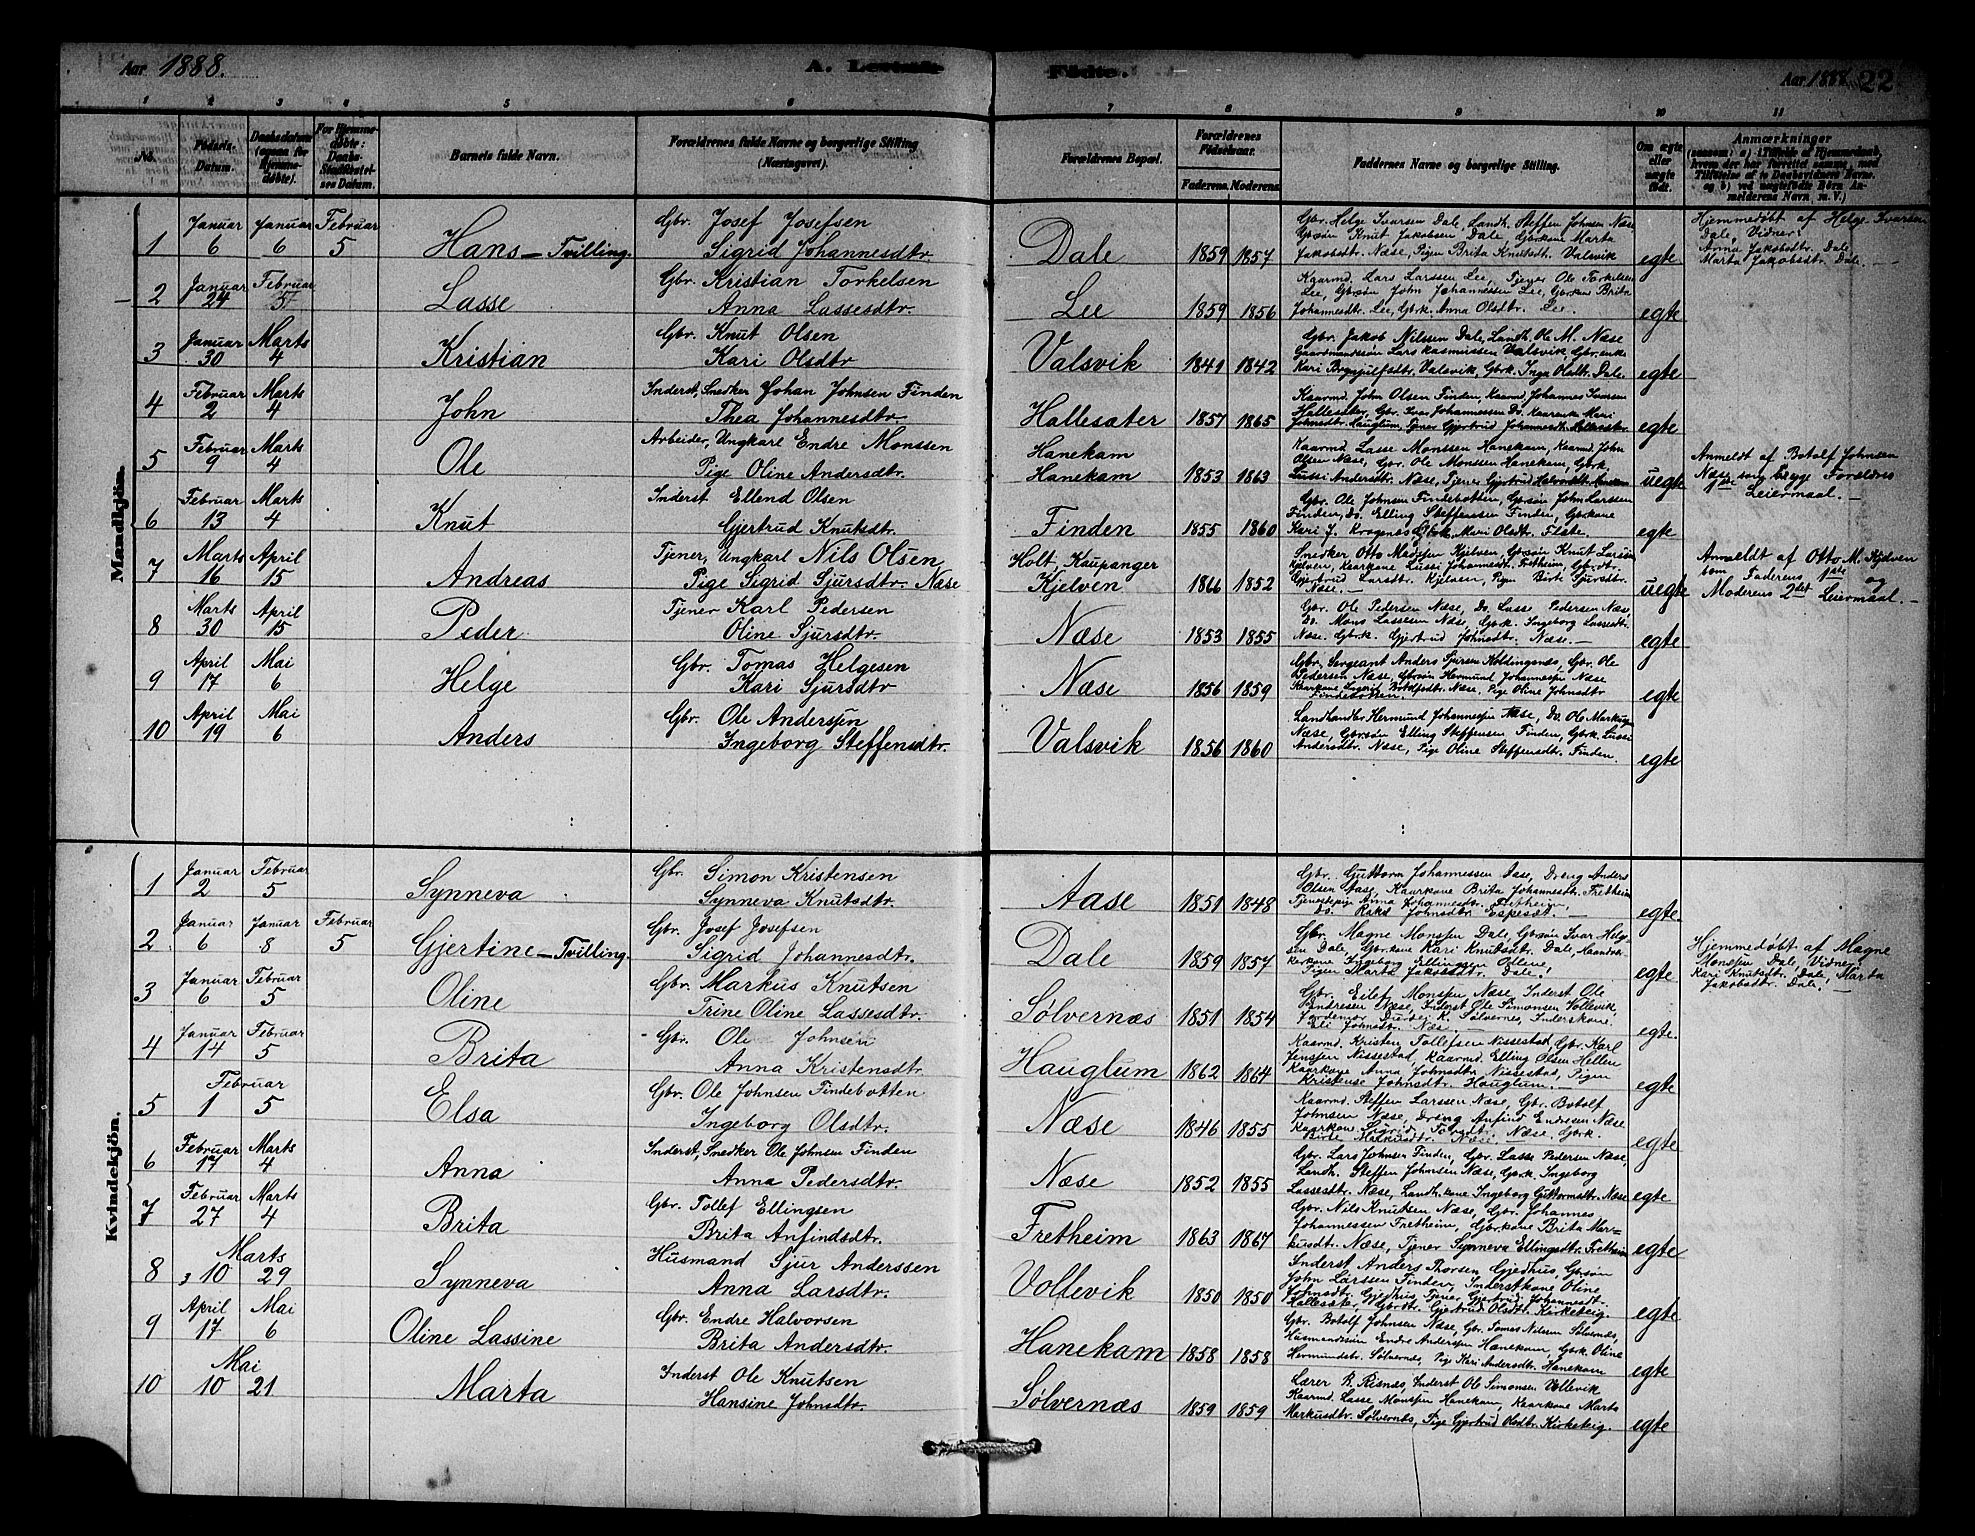 Aar 1888.
A. Levende Fødte.
Aar 1888. 22
1 2 3 4 5 6 7 8 9 10 11
No.
Fødsels-Datum.
Daabsdatum (ogsaa for Hjemmedøbte).
For Hjemmedøbte: Daabs-Stadfæstelses Datum.
Barnets fulde Navn.
Forældrenes fulde Navne og borgerlige Stilling (Næringsvei).
Forældrenes Bopæl.
Forældrenes Fødselsaar.
Faderens. Moderens.
Faddernes Navne og borgerlige Stilling.
Om ægte eller uægte født.
Anmærkninger
Mandkjön.
1 Januar 6 Januar 6 Februar 5 Hans – Tvilling. Gbr. Josef Josefsen
Sigrid Johannesdtr. Dale 1859 1857
Gbr. Helge Ivarsen Dale, Landh. Steffen Johnsen Næse
Gbrsön Knut Jakobsen Dale, Gbrkone Marta
Jakobsdtr. Næse, Pigen Brita Knutsdtr. Valsvik egte
Hjemmedøbt af Helge Ivarsen
Dale, Vidner:
Anna Jakobsdtr. Dale,
Marta Jakobsdtr. Dale.
2 Januar 24 Februar 5 Lasse Gbr. Kristian Torkelsen
Anna Lassesdtr. Lee 1859 1856
Kaarmd. Lars Larssen Lee, Tjener Ole Torkelsen
Lee, Gbrsön John Johannessen Lee, Gbrkone Brita
Johannesdtr. Lee, Gbrk. Anna Olsdtr. Lee. egte
3 Januar 30 Marts 4 Kristian Gbr. Knut Olsen
Kari Olsdtr Valsvik 1841 1842
Gbr. Jakob Nilssen Dale, Landh. Ole M. Næse
Gaardmandssön Lars Rasmussen Valsvik, Gbr. enke
Valsvik, Gbrk. Inga Olsdtr. Dale. egte
4 Februar 2 Marts 4 John Inderst, Snedker Johan Johnsen Finden
Thea Johannesdtr. Hallesæter 1857 1865
Kaarmd. John Olsen Finden, Kaarmd. Johannes Ivarsen
Hallesæter, Gbr. Ivar Johannessen Do. Mari
Johnsdtr. Hauglum, Gjertrud Johannesdtr. Hallesæter egte
5 Februar 9 Marts 4 Ole Arbeider, Ungkarl Endre Monssen
Pige Oline Andersdtr. Hanekam
Hanekam 1853 1863
Kaarmd. Lasse Monssen Hanekam, Kaarmd. John
Olsen Næse, Gbr. Ole Monssen Hanekam, Gbrk.
Lussi Andersdtr. Næse, Tjener Gjertrud uegte
Anmeldt af Botolf Johnsen
Næse som begge Forældres
1ste Leiermaal. –
6 Februar 13 Marts 4 Knut Inderst Ellend Olsen
Gjertrud Knutsdtr. Finden 1855 1860
Gbr. Ole Johnsen Findebotten, Gbrsön John Larssen
Finden, Do. Elling Steffenssen Finden, Gbrkone
Kari J. Gbrk. Mari Olsdtr. egte
7 Marts 16 April 15 Andreas Tjener, Ungkarl Nils Olsen,
Pige Sigrid Sjursdtr. Næse Holt, Kaupanger
Kjelven 1866 1852
Snedker Otto Madsen Kjelven, Gbrsön Knut Larsen
Kjelven, Kaarkone Lussi Johannesdtr. Fretheim, Gbrdtr.
Gjertrud Larsdtr. Kjelven, Pigen Birte Sjursdtr.
Næse. – uegte
Anmeldt af Otto M. Kjelven
som Faderens 1ste og
Moderens 2det Leiermaal. –
8 Marts 30 April 15 Peder Tjener Karl Pedersen
Oline Sjursdtr. Næse 1853 1855
Gbr. Ole Pedersen Næse, Do. Lasse Pedersen Næse
Do. Mons Lassesen Næse, Gbrk. Ingeborg Lassesdtr.
Næse. Gbrk. Gjertrud Johnsdtr. Næse. – egte
9 April 17 Mai 6 Helge Gbr. Tomas Helgesen
Kari Sjursdtr Næse 1856 1859
Gbr. Sergeant Anders Sjursen Koldingsnæs, Gbr. Ole
Pedersen Næse, Gbrsön Hermund Johannessen Næse
Kaarkone Botolfsdtr. Næse, Pige Oline Johnsdtr
Findebotten. egte
10 April 19 Mai 6 Anders Gbr. Ole Anderssen
Ingeborg Steffensdtr. Valsvik 1856 1860
Landhandler Hermund Johannessen Næse, Do. Ole Markussen
Næse, Gbrsön Elling Steffensen Finden, Gbrk. Lussi
Andersdtr. Næse, Pige Oline Steffensdtr. Finden. egte
Kvindekjön.
1 Januar 2 Februar 5 Synneva Gbr. Simon Kristensen
Synneva Knutsdtr. Aase 1851 1848
Gbr. Guttorm Johannessen Aase, Dreng Anders
Olsen Aase, Kaarkone Brita Johannesdtr. Fretheim
Tjenestepige Anna Johannesdtr. Fretheim,
Do. Johnsdtr. egte.
2 Januar 6 Januar 8 Februar 5 Gjertine – Tvilling. Gbr. Josef Josefsen
Sigrid Johannesdtr. Dale 1859 1857
Gbr. Magne Monssen Dale, Gbrsön Ivar Helgesen
Dale, Gbrkone Kari Knutsdtr. Dale,
Ingeborg
Pigen Marta Jakobsdtr. Dale! egte
Hjemmedøbt af Magne
Monssen Dale, Vidner:
Kari Knutsdtr. Dale, Marta
Jakobsdtr. Dale! –
3 Januar 6 Februar 5 Oline Gbr. Markus Knutsen
Trine Oline Lassesdtr. Sølvernæs 1851 1854
Gbr. Eilef Monssen Næse Inderst Ole
Andresen Næse, Inderst Ole Simonsen Vollevik,
Jordemor Durdei K. Sølvernes, Inderstkone
Eli Johnsdtr. Næse. egte.
4 Januar 14 Februar 5 Brita Gbr. Ole Johnsen
Anna Kristensdtr. Hauglum 1862 1864
Kaarmd. Kristen Tollefsen Nissestad, Gbr. Karl
Jenssen Nissestad, Kaarmd. Elling Olsen Hellen
Kaarkone Anna Johnsdtr. Nissestad, Pigen
Kristense Johnsdtr. Hauglum. egte
5 Februar 1 5 Elsa Gbr. Ole Johnsen Findebotten
Ingeborg Olsdtr. Næse 1846 1855
Kaarmd. Steffen Larssen Næse, Gbr. Botolf
Johnsen Næse, Dreng Anfind Endresen Næse
Kaarkone Sigrid Næse, Gbrk.
Birte Markusdtr. Næse. egte
6 Februar 17 Marts 4 Anna Inderst, Snedker Ole Johnsen Finden
Anna Pedersdtr. Næse 1852 1855
Gbr. Lars Johnsen Finden, Gbr. Lasse Pedersen Næse,
Landh. Steffen Johnsen Næse, Gbrk. Ingeborg
Lassesdtr. Næse, Landh. kone Ingeborg Guttormsdtr. Næse egte
7 Februar 27 Marts 4 Brita Gbr. Tollef Ellingsen
Brita Anfindsdtr. Fretheim 1863 1867
Gbr. Nils Knutsen Næse, Gbr. Johannes
Johannessen Fretheim, Gbrkone Brita Mar-
kusdtr. Næse, Tjener Synneva Ellingsdtr. Fretheim egte
8 Marts 10 29 Synneva Husmand Sjur Anderssen
Anna Larsdtr. Vollevik 1850 1850
Inderst Anders Thorsen Gjedhus, Gbrsön
John Larssen Finden, Inderstkone Oline
Johnsdtr. Gjedhus Tjener Gjertrud Johannesdt.
Hallesæter, Gbrdtr. Gjertrud Olsdtr. Kirketeig egte
9 April 17 Mai 6 Oline Lassine Gbr. Endre Halvorsen
Brita Andersdtr. Hanekam 1858 1858
Gbr. Botolf Johnsen Næse, Gbr. Tomas Nilsen Sølvernæs,
Husmandssön Endre Anderssen Hanekam, Gbrk. Oline
Hermundsdtr. Sølvernæs, Pige Kari Andersdtr. Hanekam egte
10 Mai 10 21 Marta Inderst Ole Knutsen
Hansine Johnsdtr. Sølvernæs 1859 1859
Lærer R. Risnæs, Inderst Ole Simonsen Vollevik
Kaarmd. Lasse Monssen Hanekam, Kaarkone Marta
Markusdtr. Sølvernæs, Pige Gjertrud Olsdtr. Kirketeig. egte